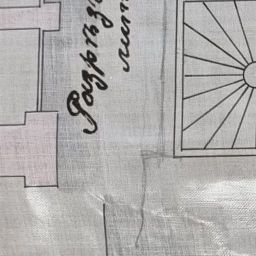 Разрѣз
лит